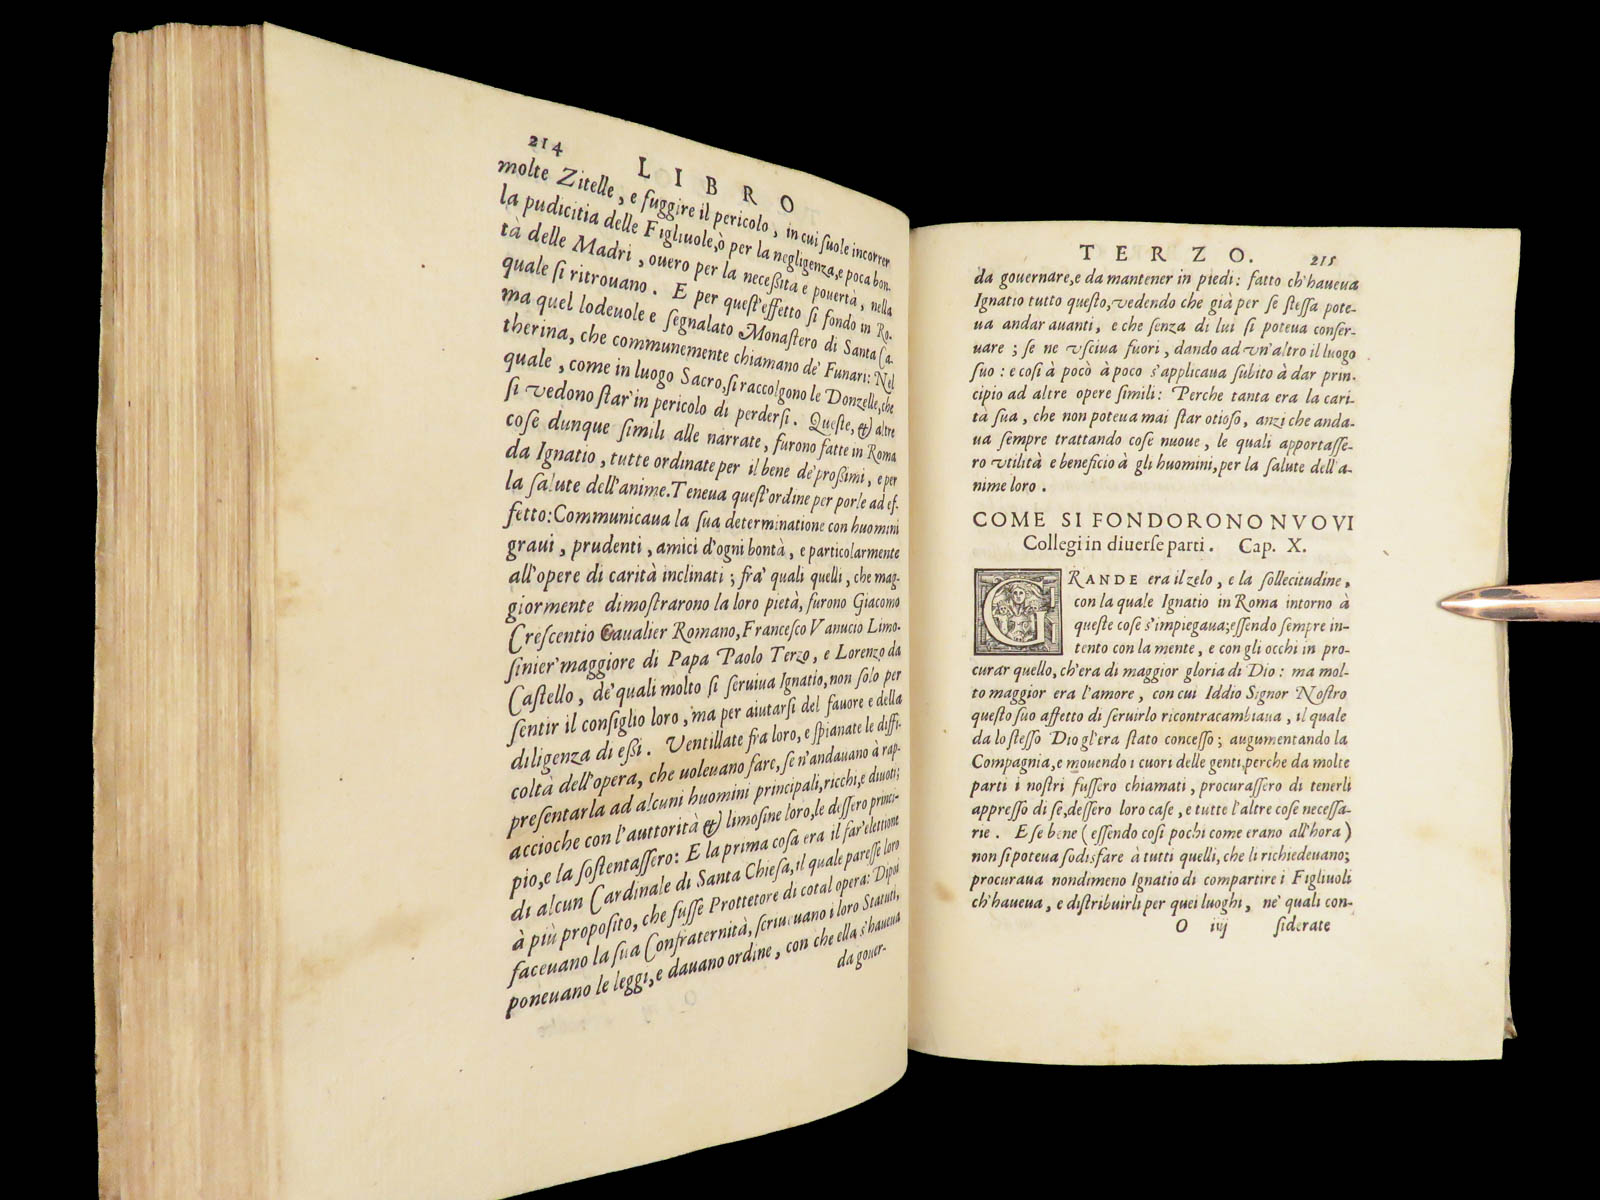 214
LIBRO
molte Zitelle, e fuggire il pericolo, in cui ſuole incorrer
la pudicitia delle Figliuole, ò per la negligenza, e poca bon-
tà delle Madri, ouero per la neceßita e pouertà, nella
quale ſi ritrouano. E per queſt'effetto ſi fondo in Ro-
ma quel lodeuole e ſegnalato Monaſtero di Santa Ca-
therina, che communemente chiamano de' Funari: Nel
quale, come in luogo Sacro, ſi raccolgono le Donzelle, che
ſi vedono ſtar' in pericolo di perderſi. Queſte, & altre
coſe dunque ſimili alle narrate, furono fatte in Roma
da Ignatio, tutte ordinate per il bene de' proßimi, e per
la ſalute dell'anime. Teneua queſt'ordine per porle ad ef-
fetto: Communicaua la ſua determinatione con huomini
graui, prudenti, amici d'ogni bontà, e particolarmente
all'opere di carità inclinati; fra' quali quelli, che mag-
giormente dimoſtrarono la loro pietà, furono Giacomo
Creſcentio Caualier Romano, Franceſco Vanucio Limo-
ſinier' maggiore di Papa Paolo Terzo, e Lorenzo da
Caſtello, de' quali molto ſi ſeruiua Ignatio, non ſolo per
ſentir il conſiglio loro, ma per aiutarſi del fauore e della
diligenza di eßi. Ventillate fra loro, e ſpianate le diffi-
coltà dell'opera, che uoleuano fare, ſe n'andauano à rap-
preſentarla ad alcuni huomini principali, ricchi, e diuoti;
accioche con l'auttorità & limoſine loro, le deſſero princi-
pio, e la ſoſtentaſſero: E la prima coſa era il far' elettione
di alcun Cardinale di Santa Chieſa, il quale pareſſe loro
à più propoſito, che fuſſe Prottetore di cotal opera: Dipoi
faceuano la ſua Confraternità, ſcriueuano i loro Statuti,
poneuano le leggi, e dauano ordine, con che ella s'haueua
da gouer-
TERZO.
215
da gouernare, e da mantener in piedi: fatto ch'haueua
Ignatio tutto queſto, vedendo che già per ſe ſteſſa pote-
ua andar auanti, e che ſenza di lui ſi poteua conſer-
uare; ſe ne vſciua fuori, dando ad vn'altro il luogo
ſuo: e coſi à pocò à poco s'applicaua ſubito à dar prin-
cipio ad altre opere ſimili: Perche tanta era la cari-
tà ſua, che non poteua mai ſtar otioſo, anzi che anda-
ua ſempre trattando coſe nuoue, le quali apportaſſe-
ro vtilità e beneficio à gli huomini, per la ſalute dell'a-
nime loro.
COME SI FONDORONO NVOVI
Collegi in diuerſe parti. Cap. X.
GRANDE era il zelo, e la ſollecitudine,
con la quale Ignatio in Roma intorno à
queſte coſe s'impiegaua; eſſendo ſempre in-
tento con la mente, e con gli occhi in pro-
curar quello, ch'era di maggior gloria di Dio: ma mol-
to maggior era l'amore, con cui Iddio Signor Noſtro
queſto ſuo affetto di ſeruirlo ricontracambiaua, il quale
da lo ſteſſo Dio gl'era ſtato conceſſo; augumentando la
Compagnia, e mouendo i cuori delle genti, perche da molte
parti i noſtri fuſſero chiamati, procuraſſero di tenerli
appreſſo di ſe, deſſero loro caſe, e tutte l'altre coſe neceſſa-
rie. E ſe bene (eſſendo coſi pochi come erano all'hora)
non ſi poteua ſodisfare à tutti quelli, che li richiedeuano;
procuraua nondimeno Ignatio di compartire i Figliuoli
ch'haueua, e diſtribuirli per quei luoghi, ne' quali con-
O iij ſiderate